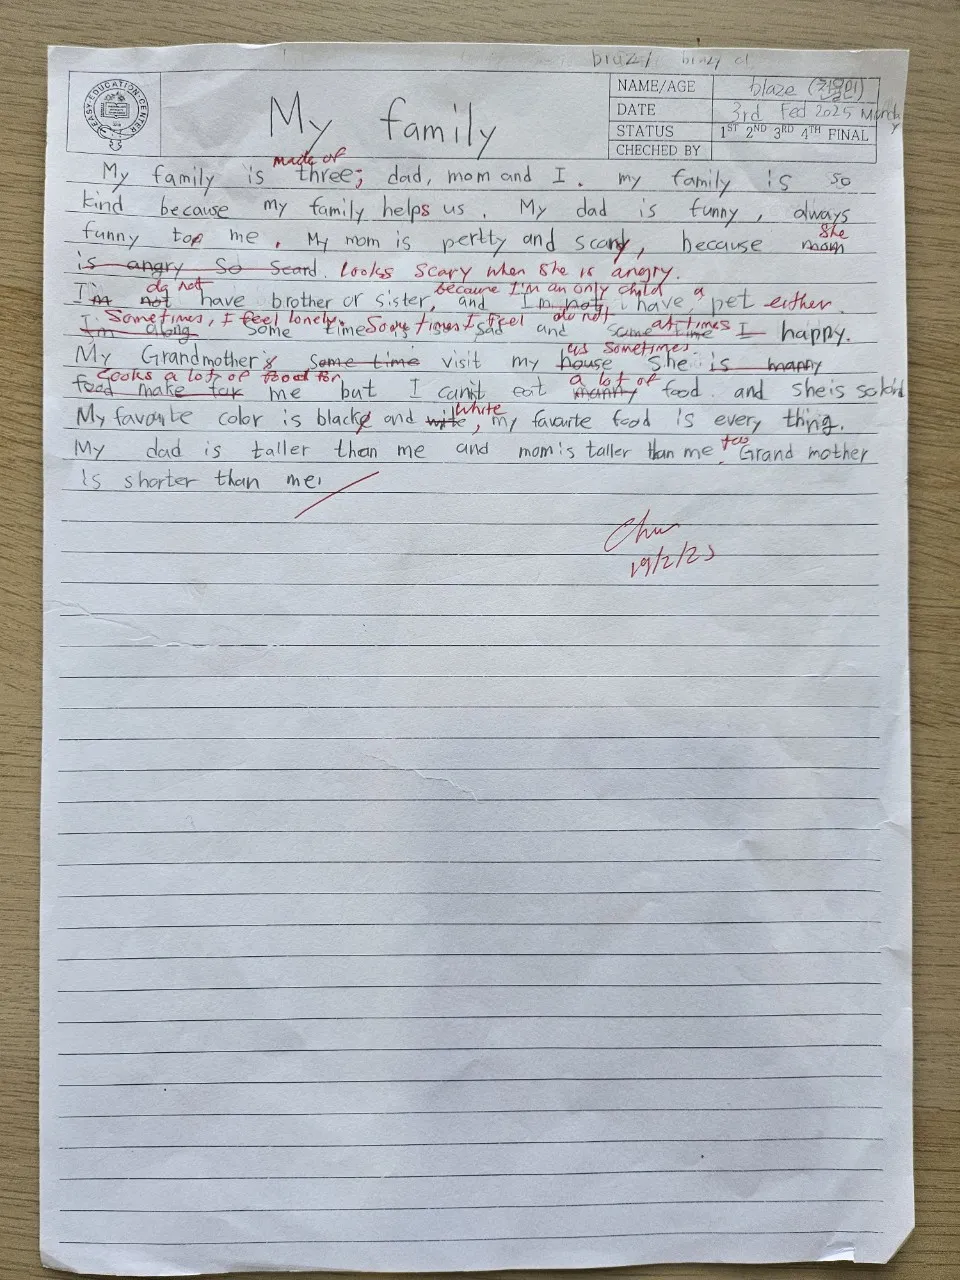 EASY EDUCATION CENTER
My family
NAME/AGE blaze
DATE 3rd Fed 2025 Monday
STATUS 1ST 2ND 3RD 4TH FINAL
CHECHED BY
made of
My family is three; dad, mom and I. my family is so
kind because my family helps us. My dad is funny, always
She
funny to me. My mom is pertty and scary, because mom
is angry so scard. looks scary when she is angry.
do not because I'm an only child a
I'm not have brother or sister, and I'm not i have pet either.
Sometimes, I feel lonely. Sometimes I feel do not at times
I'm along some time sad and some time I happy.
as sometimes
My Grandmother some time visit my house she is manny
Cooks a lot of food for a lot of
food make for me but I can't eat manny food. and she is so kind
White
My favorite color is black and wite, my favorite food is every thing.
too
My dad is taller than me and mom is taller than me. Grand mother
is shorter than me.
19/2/25